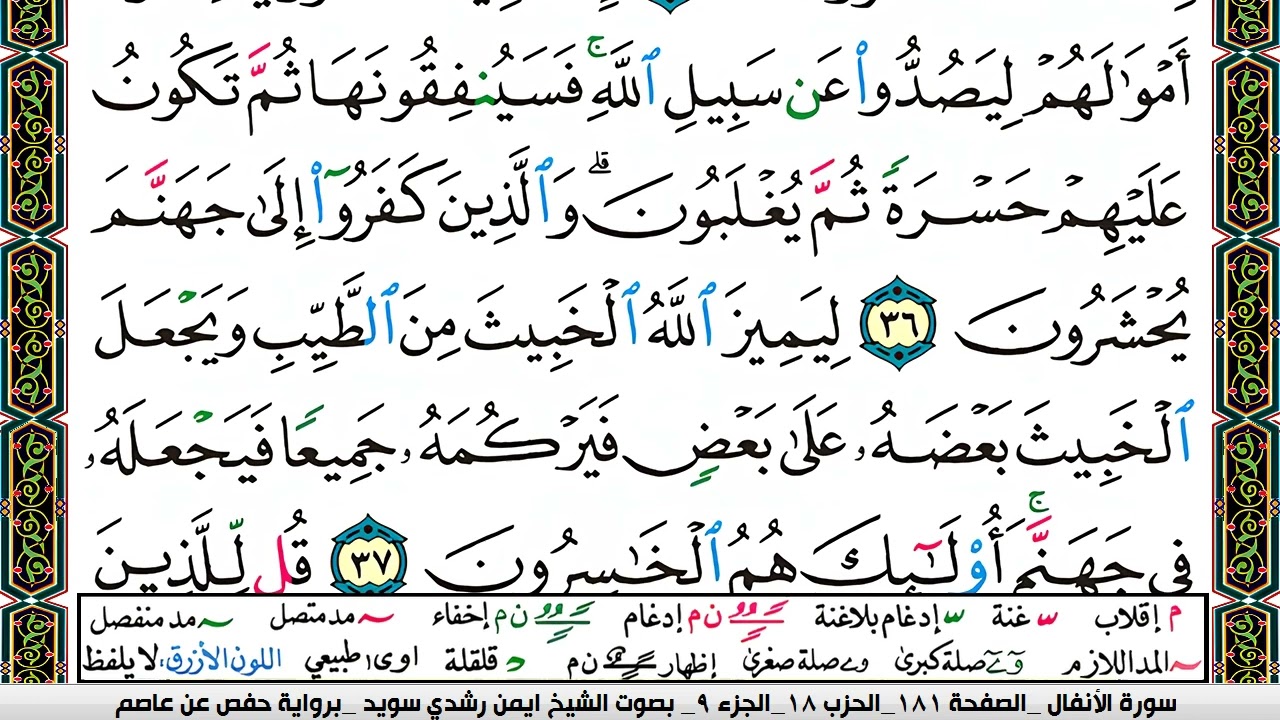 أَمۡوَٰلَهُمۡ لِيَصُدُّواْ عَن سَبِيلِ ٱللَّهِۚ فَسَيُنفِقُونَهَا ثُمَّ تَكُونُ
عَلَيۡهِمۡ حَسۡرَةٗ ثُمَّ يُغۡلَبُونَۗ وَٱلَّذِينَ كَفَرُوٓاْ إِلَىٰ جَهَنَّمَ
يُحۡشَرُونَ ٣٦ لِيَمِيزَ ٱللَّهُ ٱلۡخَبِيثَ مِنَ ٱلطَّيِّبِ وَيَجۡعَلَ
ٱلۡخَبِيثَ بَعۡضَهُۥ عَلَىٰ بَعۡضٖ فَيَرۡكُمَهُۥ جَمِيعٗا فَيَجۡعَلَهُۥ
فِي جَهَنَّمَۚ أُوْلَٰٓئِكَ هُمُ ٱلۡخَٰسِرُونَ ٣٧ قُل لِّلَّذِينَ
م إقلاب ـّ غنة ـّ إدغام بلاغنة ن م إدغام ن م إخفاء ~ مد متصل ~ مد منفصل
~ المد اللازم وٓ ےٓ صلة كبرى و ے صلة صغرى إظهار ن م د قلقلة ا و ى طبيعي اللون الأزرق، لا يلفظ
سورة الأنفال _الصفحة ١٨١_الحزب ١٨_الجزء ٩_ بصوت الشيخ ايمن رشدي سويد _برواية حفص عن عاصم